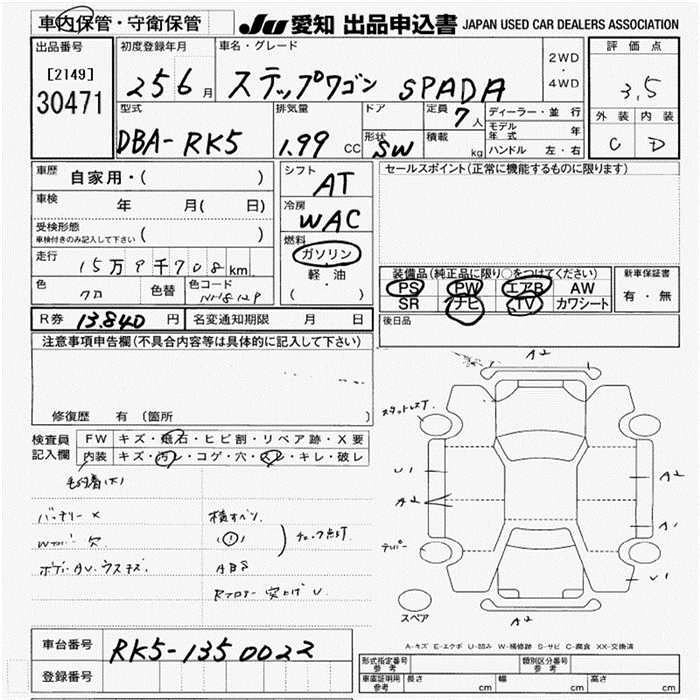 車内保管・守衛保管
JU 愛知 出品申込書 JAPAN USED CAR DEALERS ASSOCIATION
出品番号
[2149]
30471
初度登録年月
25 6 月
車名・グレード
ステップワゴン SPADA
2WD
・
4WD
評価点
3.5
外装 内装
C D
型式
DBA-RK5
排気量
1.99 CC
ドア
形状
SW
定員 7人
積載 kg
ディーラー・並行
モデル年式 年
ハンドル 左・右
車歴 自家用・( )
車検 年 月( 日)
受検形態
車検付きのみ記入して下さい ( )
走行 15万9千708km
色 クロ 色替 色コード
R券 13.840 円 名変通知期限 月 日
シフト AT
冷房 WAC
燃料
ガソリン
軽・油
( )
セールスポイント(正常に機能するものに限ります)
装備品(純正品に限り○をつけてください)
PS PW エアB AW
SR ナビ TV カワシート
新車保証書
有・無
後日品
注意事項申告欄(不具合内容等は具体的に記入して下さい)
修復歴 有 (箇所
検査員記入欄
FW キズ・飛石・ヒビ割・リペア跡・X要
内装 キズ・汚レ・コゲ・穴・スレ・キレ・破レ
バッテリーX
Wカバー欠
チェック点灯
(!)
A2
スタッドレス7.
U1
A2
A2
A1
U1
テンパー
スペア
A2
A-キズ E-エクボ U-凹み W-補修跡 S-サビ C-腐食 XX-交換済
車台番号 RK5-1350022
登録番号
形式指定番号
参考
類別区分番号
参考
車庫証明用
参考
長さ cm 幅 cm 高さ cm